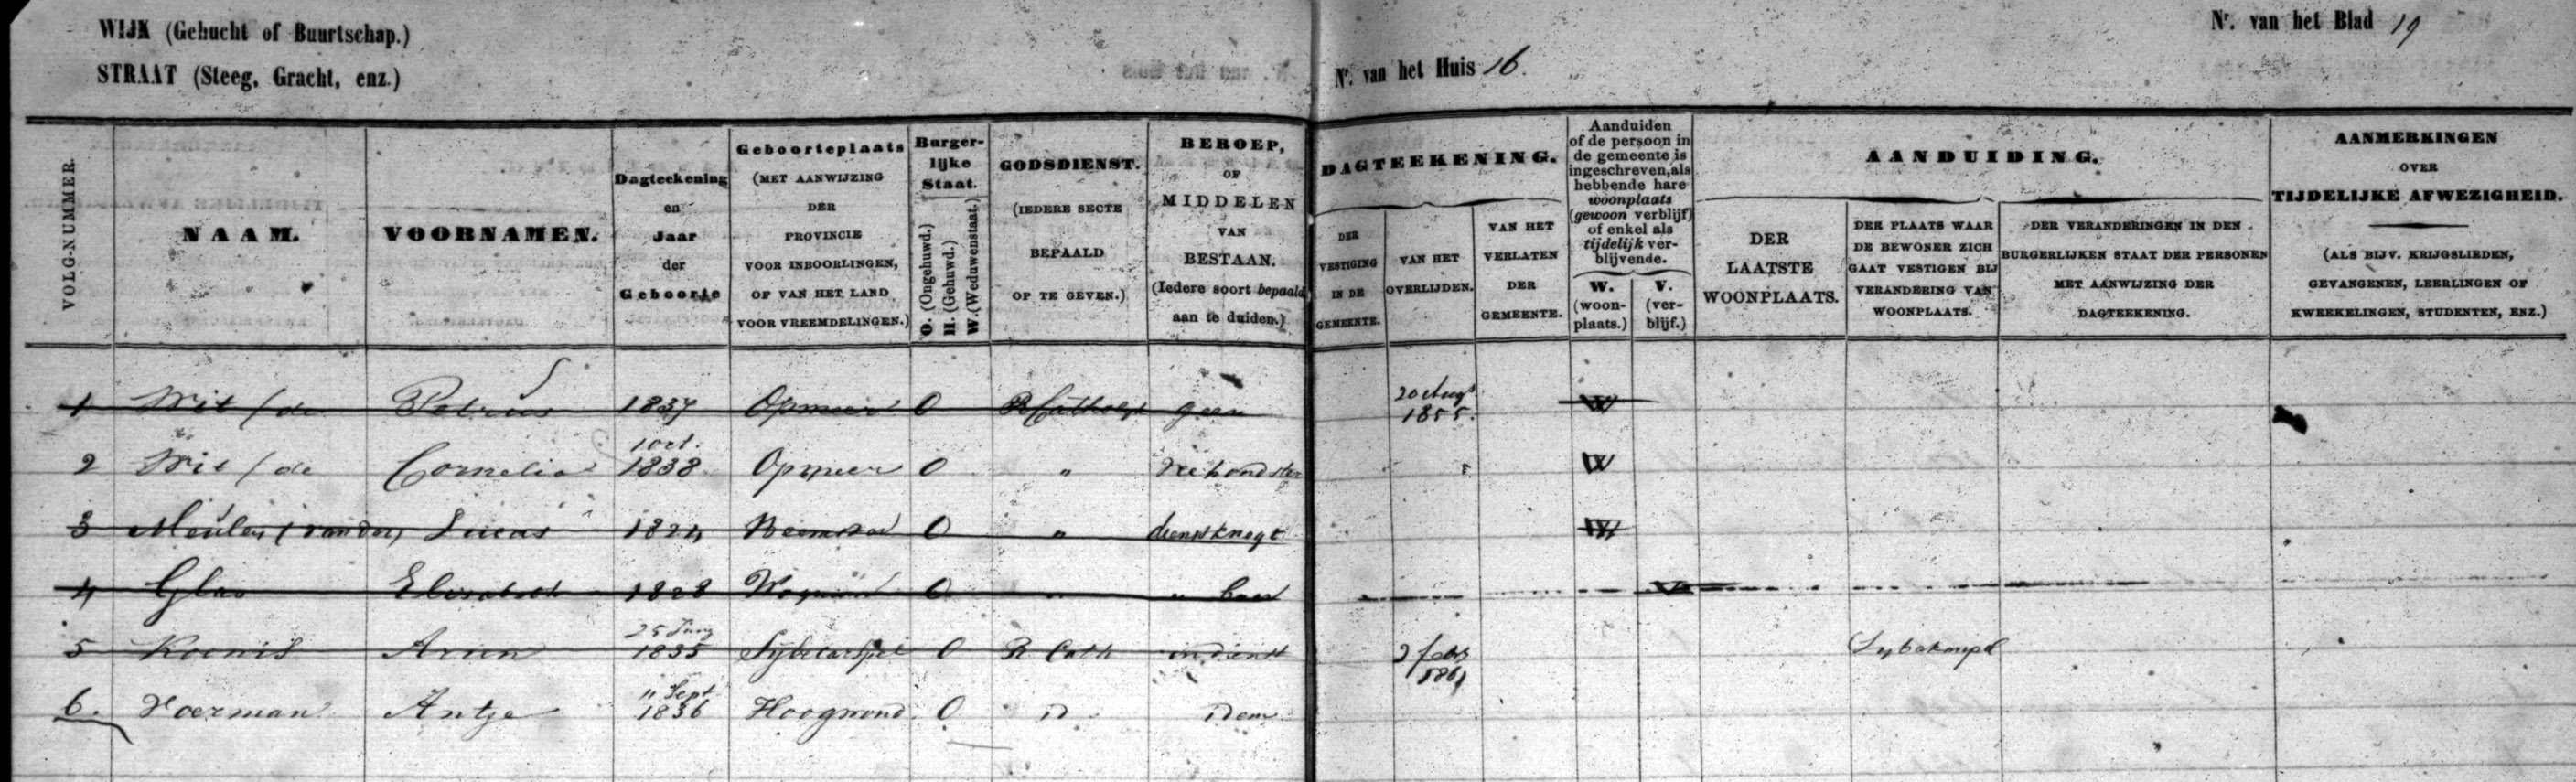 WIJK (Gehucht of Buurtschap.)
STRAAT (Steeg, Gracht, enz.)
Nr. van het Huis 16.
Nr. van het Blad 19
VOLG-NUMMER.
NAAM.
VOORNAMEN.
Dagteekening
en
Jaar
der
Geboorte
Geboorteplaats
(MET AANWIJZING
DER
PROVINCIE
VOOR INBOORLINGEN,
OF VAN HET LAND
VOOR VREEMDELINGEN.)
Burger-
lijke
Staat.
O. (Ongehuwd.)
H. (Gehuwd.)
W. (Weduwenstaat.)
GODSDIENST.
(IEDERE SECTE
BEPAALD
OP TE GEVEN.)
BEROEP,
OF
MIDDELEN
VAN
BESTAAN.
(Iedere soort bepaald
aan te duiden.)
DAGTEEKENING.
DER
VESTIGING
IN DE
GEMEENTE.
VAN HET
OVERLIJDEN.
VAN HET
VERLATEN
DER
GEMEENTE.
Aanduiden
of de persoon in
de gemeente is
ingeschreven, als
hebbende hare
woonplaats
(gewoon verblijf)
of enkel als
tijdelijk ver-
blijvende.
W.
(woon-
plaats.)
V.
(ver-
blijf.)
AANDUIDING.
DER
LAATSTE
WOONPLAATS.
DER PLAATS WAAR
DE BEWONER ZICH
GAAT VESTIGEN BIJ
VERANDERING VAN
WOONPLAATS.
DER VERANDERINGEN IN DEN
BURGERLIJKEN STAAT DER PERSONEN
MET AANWIJZING DER
DAGTEEKENING.
AANMERKINGEN
OVER
TIJDELIJKE AFWEZIGHEID.
(ALS BIJV. KRIJGSLIEDEN,
GEVANGENEN, LEERLINGEN OF
KWEEKELINGEN, STUDENTEN, ENZ.)
1 Wit / de Petrus 1837 Opmeer O R Catholyk geen 20 Aug 1855. W
2 Wit / de Cornelia 1 Oct. 1838 Opmeer O " W
3 Meulen (van der) Lucas 1824 Beemster O " dienstknegt W
4 Glas Elisabeth 1828 Wognum O " " V
5 Koenis Arien 25 1835 Sijbecarspel O R Cath in dienst 2 febr 1861
6. Voerman Antje 11 Sept 1836 Hoogwoud O id idem